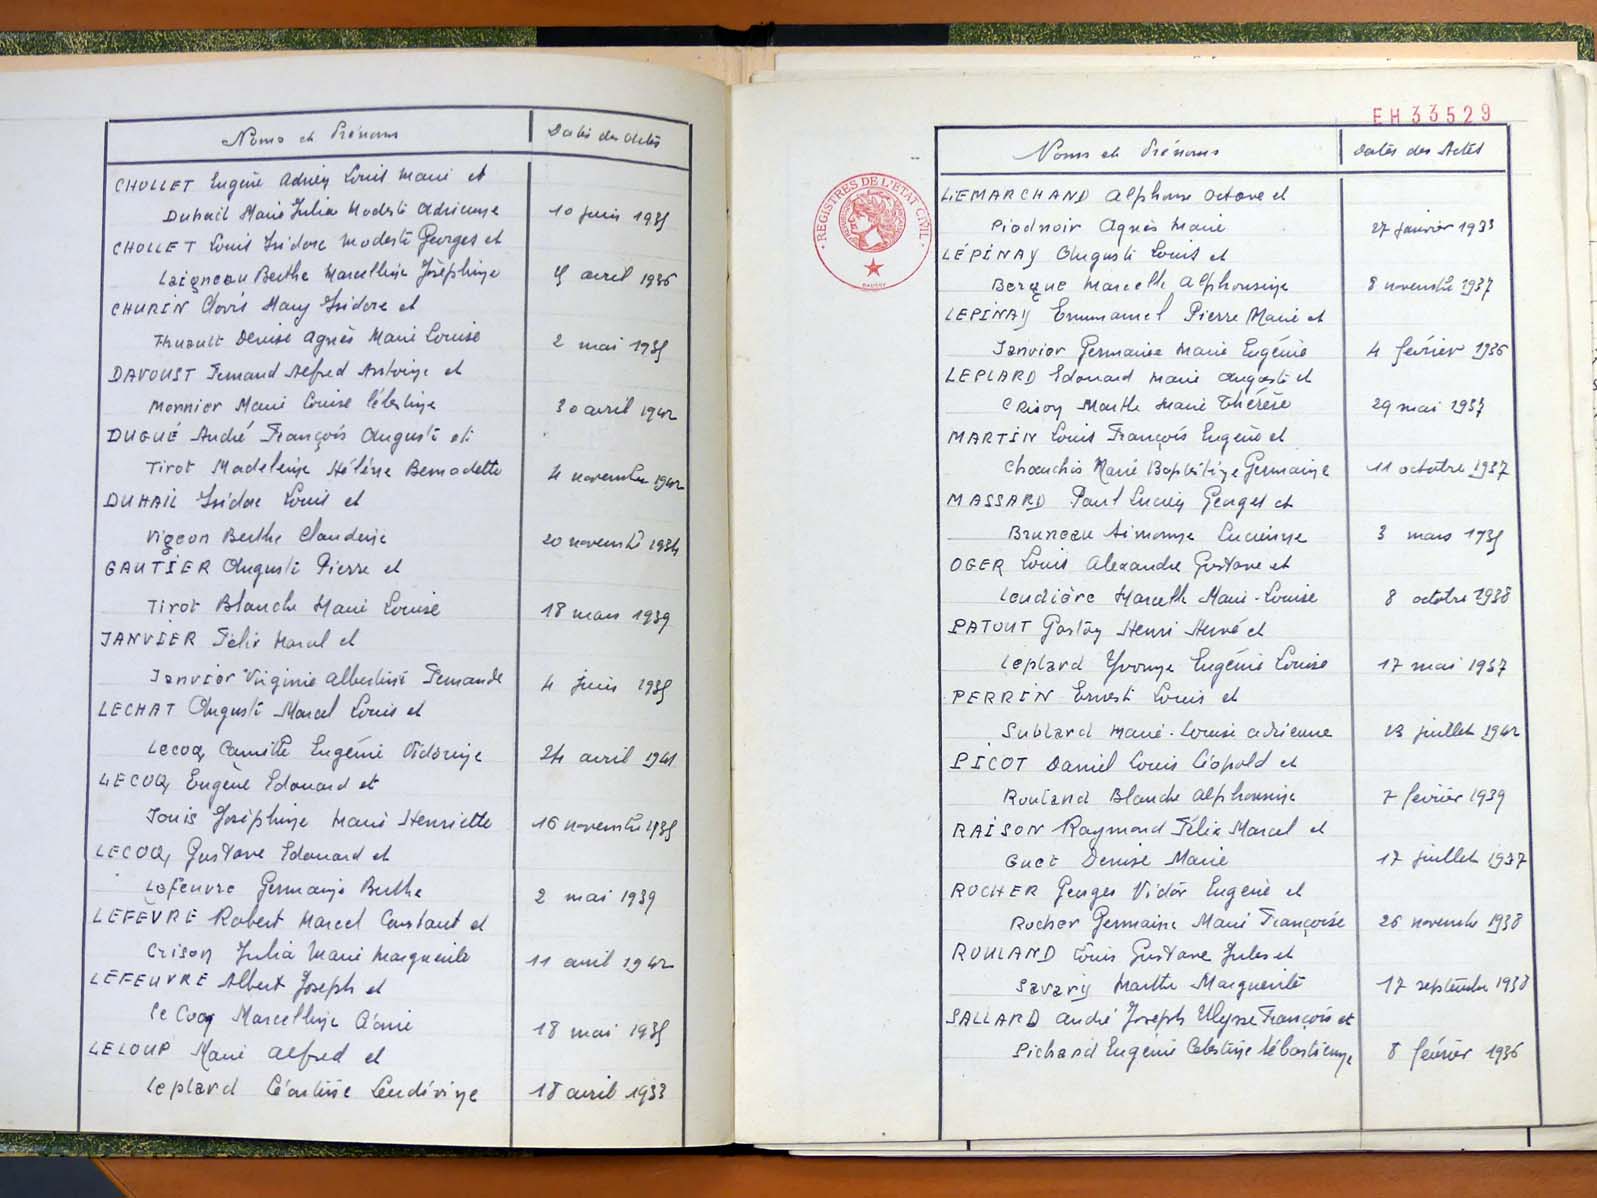 Noms et Prénoms Dates des Actes
CHOLLET Eugène Adrien Louis Marie et
Duhail Marie Julia Modeste Adrienne 10 juin 1935
CHOLLET Louis Isidore Modeste Georges et
Laigneau Berthe Marcelline Joséphine avril 1936
CHURIN Clovis Isidore et
Thuault Denise Agnès Marie Louise 2 mai 1935
DAVOUST Fernand Alfred Antoine et
Monnier Marie Louise Célestine 30 avril 1942
DUGUÉ André François Auguste et
Tirot Madeleine Hélène Bernadette 4 novembre 1942
DUHAIL Isidore Louis et
Vigeon Berthe Claudine 20 novembre 1934
GAUTIER Auguste Pierre et
Tirot Blanche Marie Louise 18 mars 1939
JANVIER Félix Marcel et
Janvier Virginie Albertine Fernande 4 juin 1935
LECHAT Auguste Marcel Louis et
Lecoq Camille Eugénie Victorine 24 avril 1941
LECOQ Eugène Edouard et
Jouis Joséphine Marie Henriette 16 novembre 1935
LECOQ Gustave Edouard et
Lefeuvre Germaine Berthe 2 mai 1939
LEFEVRE Robert Marcel Constant et
Crison Julia Marie Marguerite 11 avril 1942
LEFEUVRE Albert Joseph et
Le Coq Marcelline Aimée 18 mai 1935
LELOUP Marie Alfred et
Leplard Léontine Ludivine 18 avril 1933
EH33529
REGISTRES DE L'ÉTAT CIVIL
Noms et Prénoms Dates des Actes
LEMARCHAND Alphonse Octave et
Piednoir Agnès Marie 27 janvier 1933
LÉPINAY Auguste Louis et
Bergue Marcelle Alphonsine 8 novembre 1937
LEPINAY Emmanuel Pierre Marie et
Janvier Germaine Marie Eugénie 4 février 1936
LEPLARD Edouard Marie Auguste et
Crison Marthe Marie Thérèse 29 mai 1937
MARTIN Louis François Eugène et
Chauchis Marie Baptistine Germaine 11 octobre 1937
MASSARD Paul Lucien Georges et
Bruneau Simonne Lucienne 3 mars 1935
OGER Louis Alexandre Gustave et
Leudière Marcelle Marie-Louise 8 octobre 1938
PATOUT Gaston Henri Hervé et
Leplard Yvonne Eugénie Louise 17 mai 1937
PERRIN Ernest Louis et
Sublard Marie-Louise Adrienne juillet 1942
PICOT Daniel Louis Léopold et
Rouland Blanche Alphonsine 7 février 1939
RAISON Raymond Félix Marcel et
Guet Denise Marie 17 juillet 1937
ROCHER Georges Victor Eugène et
Rocher Germaine Marie Françoise 26 novembre 1938
ROULAND Louis Gustave Jules et
Savary Marthe Marguerite 17 septembre 1938
SALLARD André Joseph Ulysse François et
Pichard Eugénie Célestine Sébastienne 8 février 1936